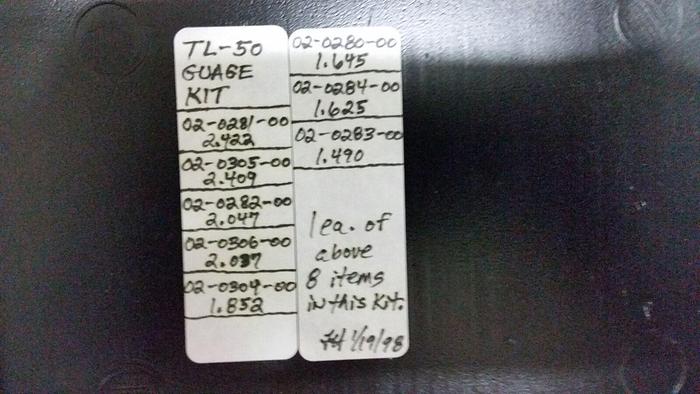 TL-50
GUAGE
KIT
02-0281-00
2.422
02-0305-00
2.409
02-0282-00
2.047
02-0306-00
2.037
02-0304-00
1.852
02-0280-00
1.645
02-0284-00
1.625
02-0283-00
1.490
1 ea. of
above
8 items
in this kit.
1/19/98